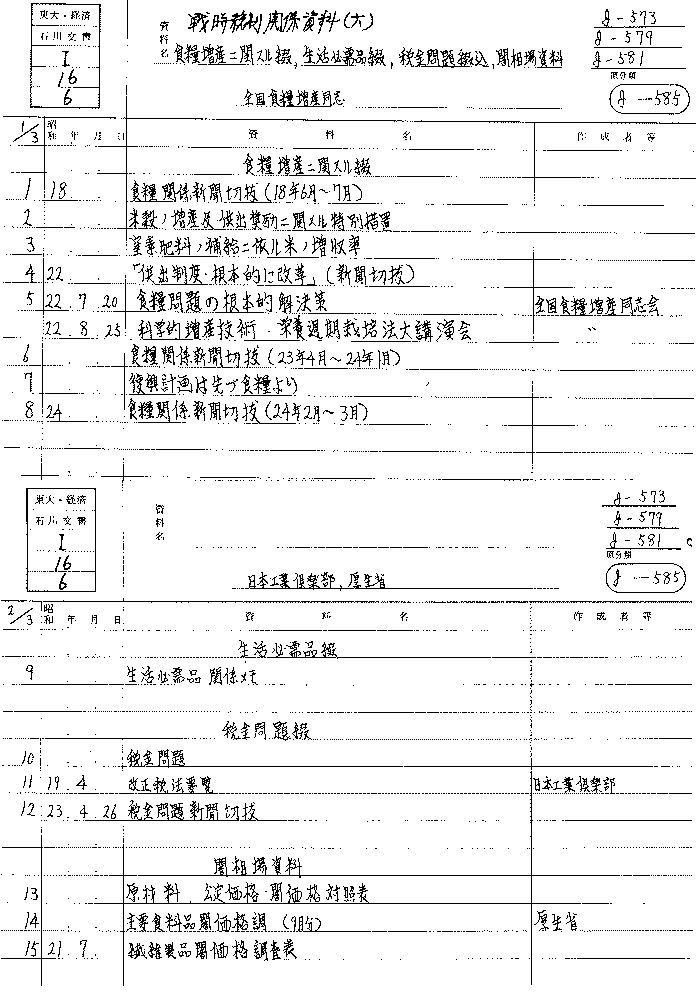 東大・経済
石川文書
I
16
6
資料名
戦時税制関係資料(六)
食糧増産ニ関スル綴,生活必需品綴,税金問題綴込,闇相場資料
全国食糧増産同志
J-573
J-579
J-581
原分類
J-585
1/3 昭和 年 月 日 資料名 作成者等
食糧増産ニ関スル綴
1 18. 食糧関係新聞切抜(18年6月~7月)
2 米穀ノ増産及供出奨励ニ関スル特別措置
3 窒素肥料ノ補給ニ依ル米ノ増収率
4 22. 「供出制度・根本的に改革」(新聞切抜)
5 22. 7. 20 食糧問題の根本的解決策 全国食糧増産同志会
22. 8. 25 科学的増産技術・栄養週期栽培法大講演会 〃
6 食糧関係新聞切抜(23年4月~24年1月)
7 復興計画は先づ食糧より
8 24. 食糧関係新聞切抜(24年2月~3月)
東大・経済
石川文書
I
16
6
資料名
日本工業倶楽部,厚生省
J-573
J-579
J-581
原分類
J-585
2/3 昭和 年 月 日 資料名 作成者等
生活必需品綴
9 生活必需品関係メモ
税金問題綴
10 税金問題
11 19. 4. 改正税法要覧 日本工業倶楽部
12 23. 4. 26 税金問題新聞切抜
闇相場資料
13 原材料、公定価格・闇価格対照表
14 主要食料品闇価格調(9月分) 厚生省
15 21. 7. 繊維製品闇価格調査表